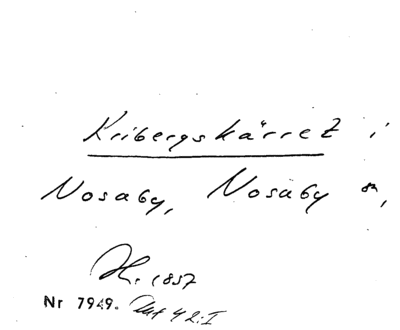 Kribergskärret i
Nosaby, Nosaby sn,
1857
Nr 7949.